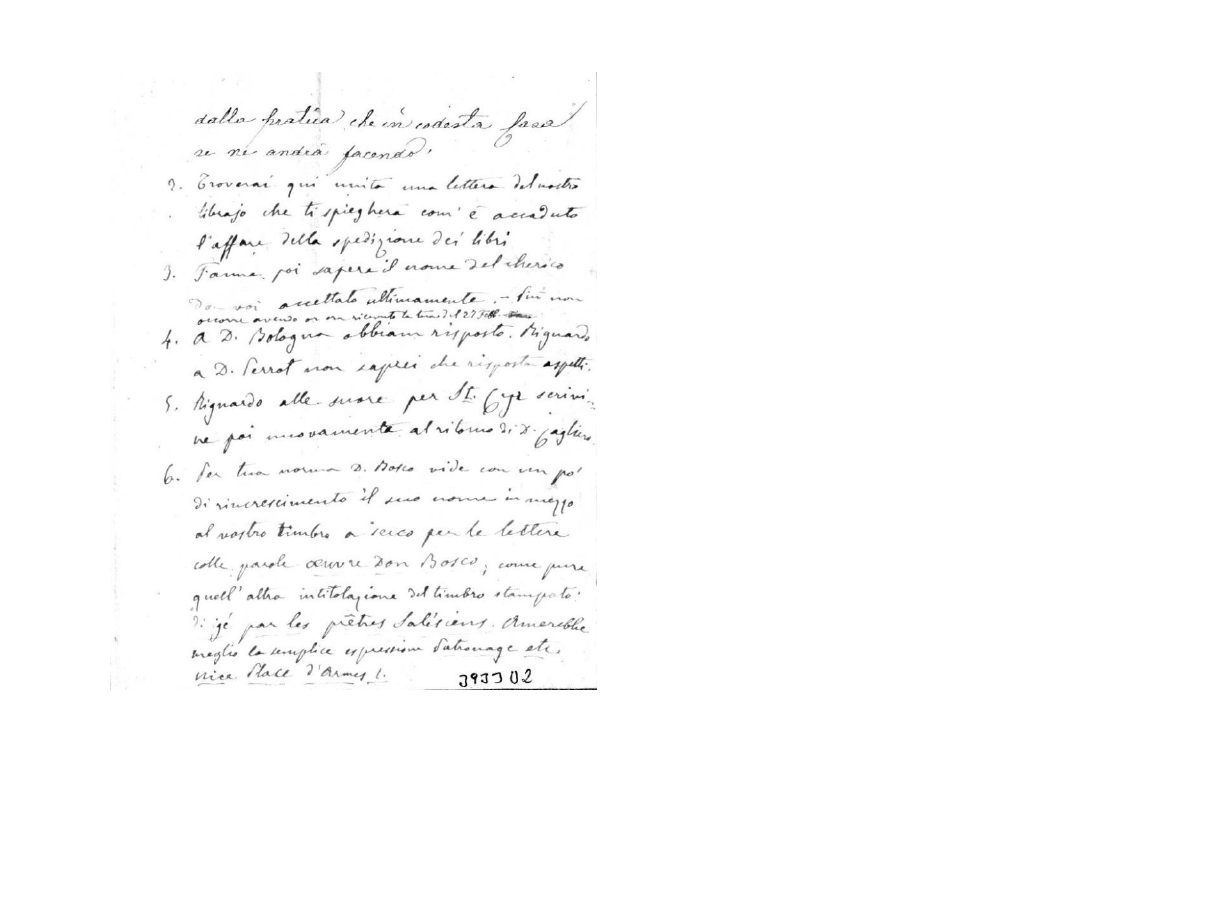 dalla pratica che in codesta Casa
se ne andrà facendo.
2. Troverai qui unita una lettera del nostro
librajo che ti spiegherà com' è accaduto
l'affare della spedizione dei libri
3. Fanne poi sapere il nome del cherico
da voi accettato ultimamente. – Più non
occorre avendo or ora ricevuto la tua del 27 Feb.
4. A D. Bologna abbiam risposto. Riguardo
a D. Perrot non saprei che risposta aspetti.
5. Riguardo alle suore per St. Cyr scrivi-
ne poi nuovamente al ritorno di D. Cagliero.
6. Per tua norma D. Bosco vide con un po'
di rincrescimento il suo nome in mezzo
al vostro timbro a secco per le lettere
colle parole œuvre Don Bosco; come pure
quell' altra intitolazione del timbro stampato:
dirigé par les prêtres Salésiens. Amerebbe
meglio la semplice espressione Patronage etc.
Nice Place d'Armes 1.
3933 02